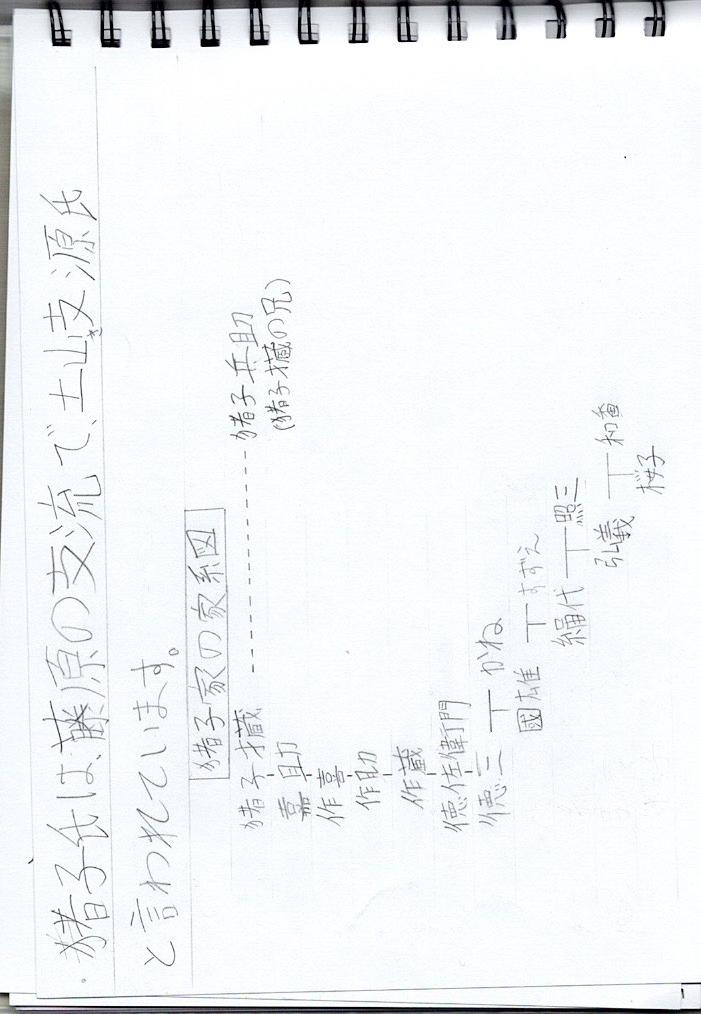 ・猪子氏は、藤原の支流で、土山支源氏
き
と言われています。
猪子家の家系図
猪子才蔵
猪子兵助
(猪子才蔵の兄)
嘉助
作喜
作助
作蔵
徳佐衛門
徳三
かね
國雄
すずえ
絹代
照三
弘義
和香
桜子